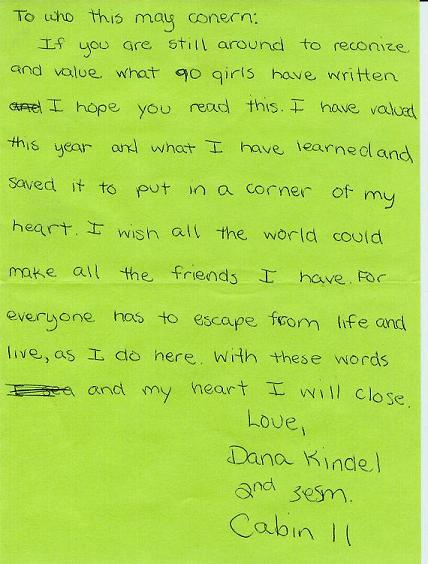 To who this may conern:
If you are still around to reconize
and value what 90 girls have written
and I hope you read this. I have valued
this year and what I have learned and
saved it to put in a corner of my
heart. I wish all the world could
make all the friends I have. For
everyone has to escape from life and
live, as I do here. With these words
and my heart I will close.
Love,
Dana Kindel
2nd sesm.
Cabin 11